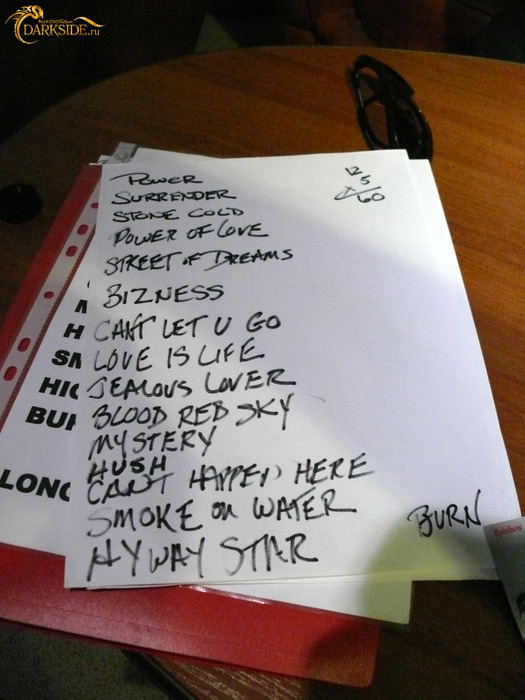 russian
DARKSIDE.ru
12
x 5
60
POWER
SURRENDER
STONE COLD
POWER OF LOVE
STREET OF DREAMS
BIZNESS
CAN'T LET U GO
LOVE IS LIFE
JEALOUS LOVER
BLOOD RED SKY
MYSTERY
HUSH
CAN'T HAPPEN HERE
SMOKE on WATER
HYWAY STAR
BURN
H
SM
HIG
BUR
LONG
Rainbow